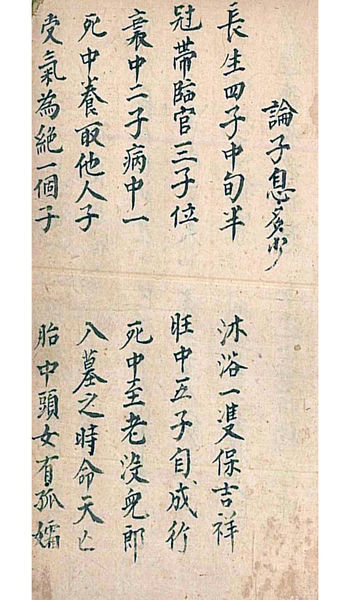 論子息多少
長生四子中旬半 沐浴一雙保吉祥
冠帶臨官三子位 旺中五子自成行
衰中二子病中一 死中至老沒兒郎
死中養取他人子 入墓之時命天亡
受氣為絕一個子 胎中頭女有孤孀